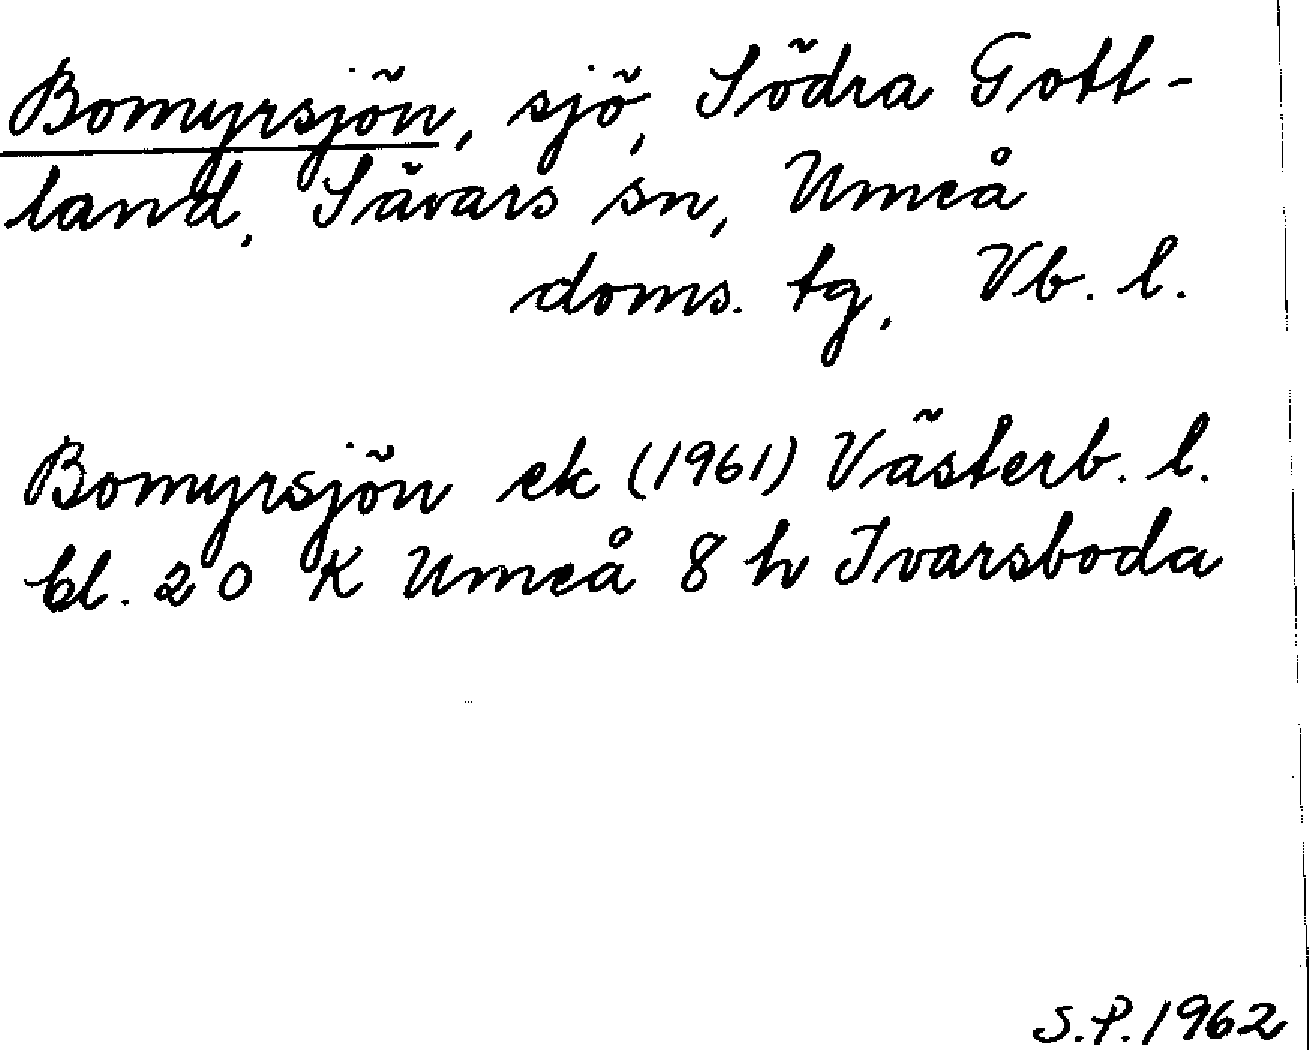 Bomyrsjön, sjö, Södra Gott-
land, Sävars sn, Umeå
doms. tg, Vb. l.
Bomyrsjön ek (1961) Västerb. l.
bl. 20 K Umeå 8 h Ivarsboda
S.P. 1962